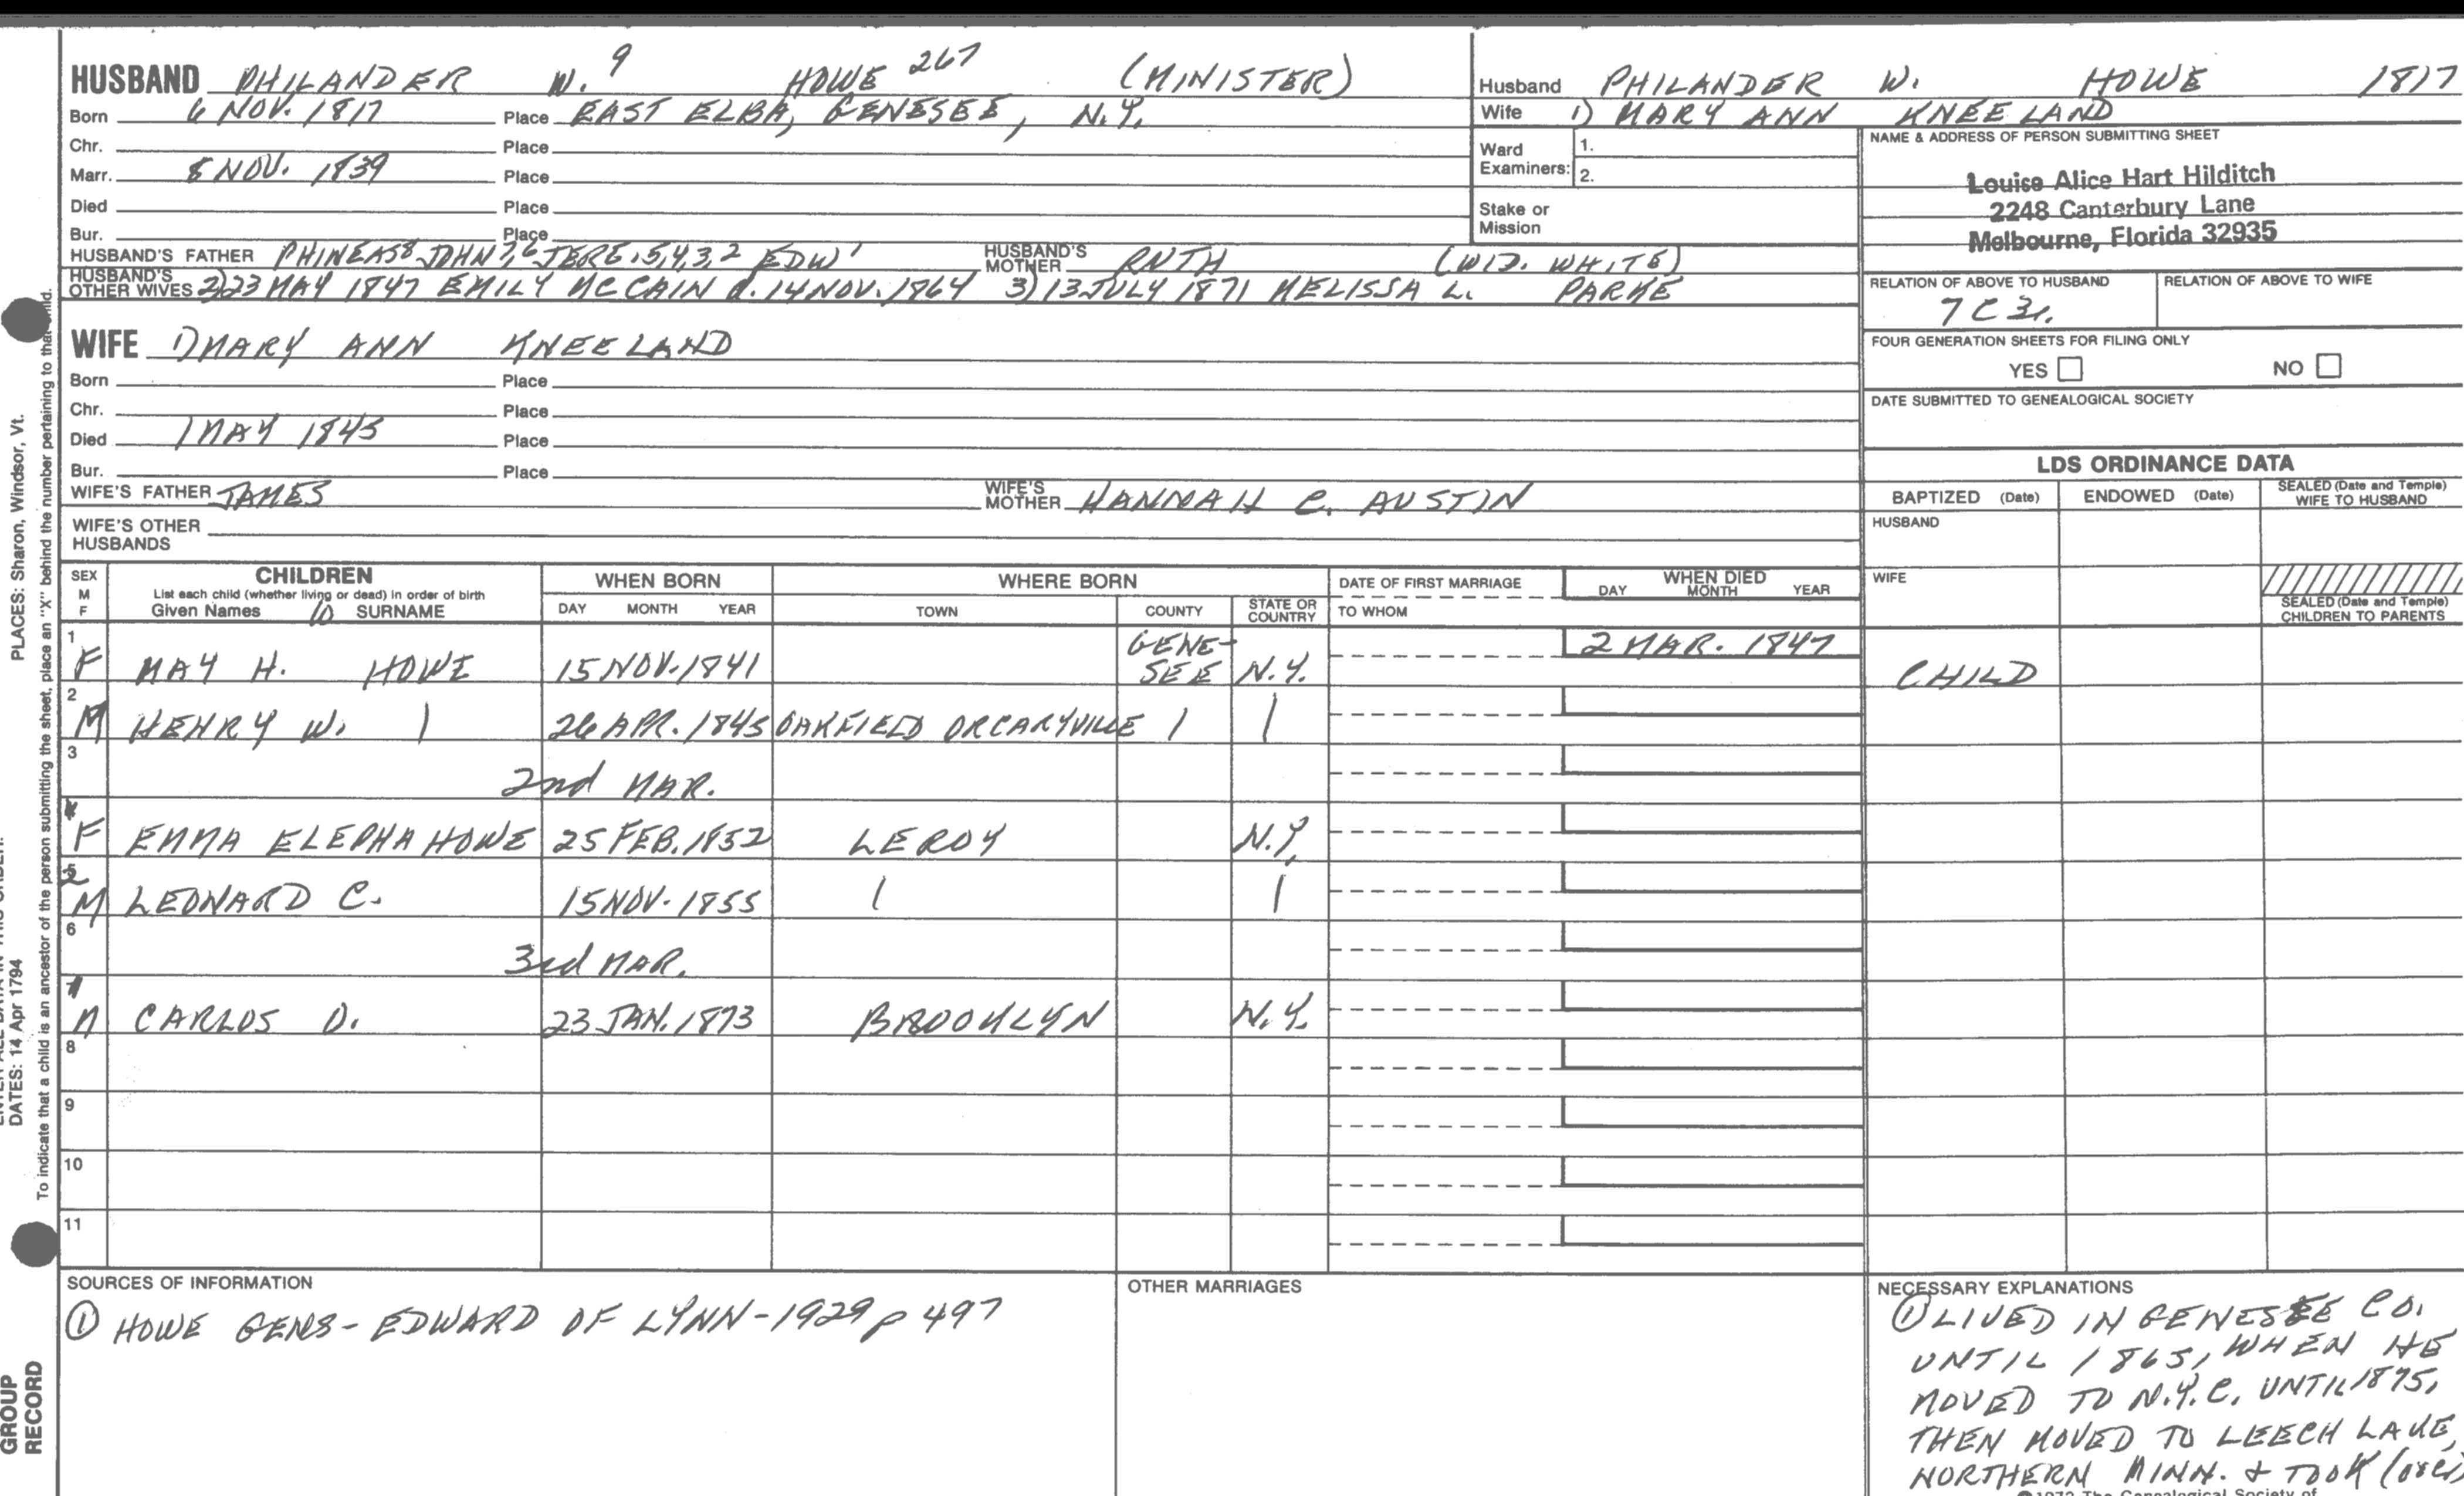 HUSBAND PHILANDER W. 9 HOWE 267 (MINISTER)
Born 6 NOV. 1817 Place EAST ELBA, GENESEE, N.Y.
Chr. Place
Marr. 8 NOV. 1839 Place
Died Place
Bur. Place
HUSBAND'S FATHER PHINEAS8 JOHN7,6 JERE.5,4,3,2 EDW1 HUSBAND'S MOTHER RUTH (WID. WHITE)
HUSBAND'S OTHER WIVES 2) 23 MAY 1847 EMILY MCCAIN d. 14 NOV. 1864 3) 13 JULY 1871 MELISSA L. PARKE
WIFE 1) MARY ANN KNEELAND
Born Place
Chr. Place
Died 1 MAY 1845 Place
Bur. Place
WIFE'S FATHER JAMES WIFE'S MOTHER HANNAH C. AUSTIN
WIFE'S OTHER HUSBANDS
Husband PHILANDER W. HOWE 1817
Wife 1) MARY ANN KNEELAND
Ward Examiners: 1.
2.
Stake or Mission
NAME & ADDRESS OF PERSON SUBMITTING SHEET
Louise Alice Hart Hilditch
2248 Canterbury Lane
Melbourne, Florida 32935
RELATION OF ABOVE TO HUSBAND RELATION OF ABOVE TO WIFE
7 C 3r.
FOUR GENERATION SHEETS FOR FILING ONLY
YES NO
DATE SUBMITTED TO GENEALOGICAL SOCIETY
LDS ORDINANCE DATA
BAPTIZED (Date) ENDOWED (Date) SEALED (Date and Temple) WIFE TO HUSBAND
HUSBAND
WIFE
SEALED (Date and Temple) CHILDREN TO PARENTS
SEX M F CHILDREN WHEN BORN WHERE BORN DATE OF FIRST MARRIAGE WHEN DIED
List each child (whether living or dead) in order of birth
Given Names (1) SURNAME DAY MONTH YEAR TOWN COUNTY STATE OR COUNTRY TO WHOM DAY MONTH YEAR
1 F MAY H. HOWE 15 NOV. 1841 GENE-SEE N.Y. 2 MAR. 1847 CHILD
2 M HENRY W. | 26 APR. 1845 OAKFIELD OR CARYVILLE | |
3 2nd MAR.
F EMMA ELEPHA HOWE 25 FEB. 1852 LEROY N.Y.
2 M LEONARD C. 15 NOV. 1855 | |
6 3rd MAR.
1 M CARLOS D. 23 JAN. 1873 BROOKLYN N.Y.
8
9
10
11
SOURCES OF INFORMATION
① HOWE GENS - EDWARD OF LYNN - 1929 p 497
OTHER MARRIAGES
NECESSARY EXPLANATIONS
① LIVED IN GENESEE CO.
UNTIL 1865, WHEN HE
MOVED TO N.Y.C. UNTIL 1875,
THEN MOVED TO LEECH LAKE,
NORTHERN MINN. & TOOK (over)
PLACES: Sharon, Windsor, Vt.
DATES: 14 Apr 1794
To indicate that a child is an ancestor of the person submitting the sheet, place an "X" behind the number pertaining to that child.
GROUP
RECORD